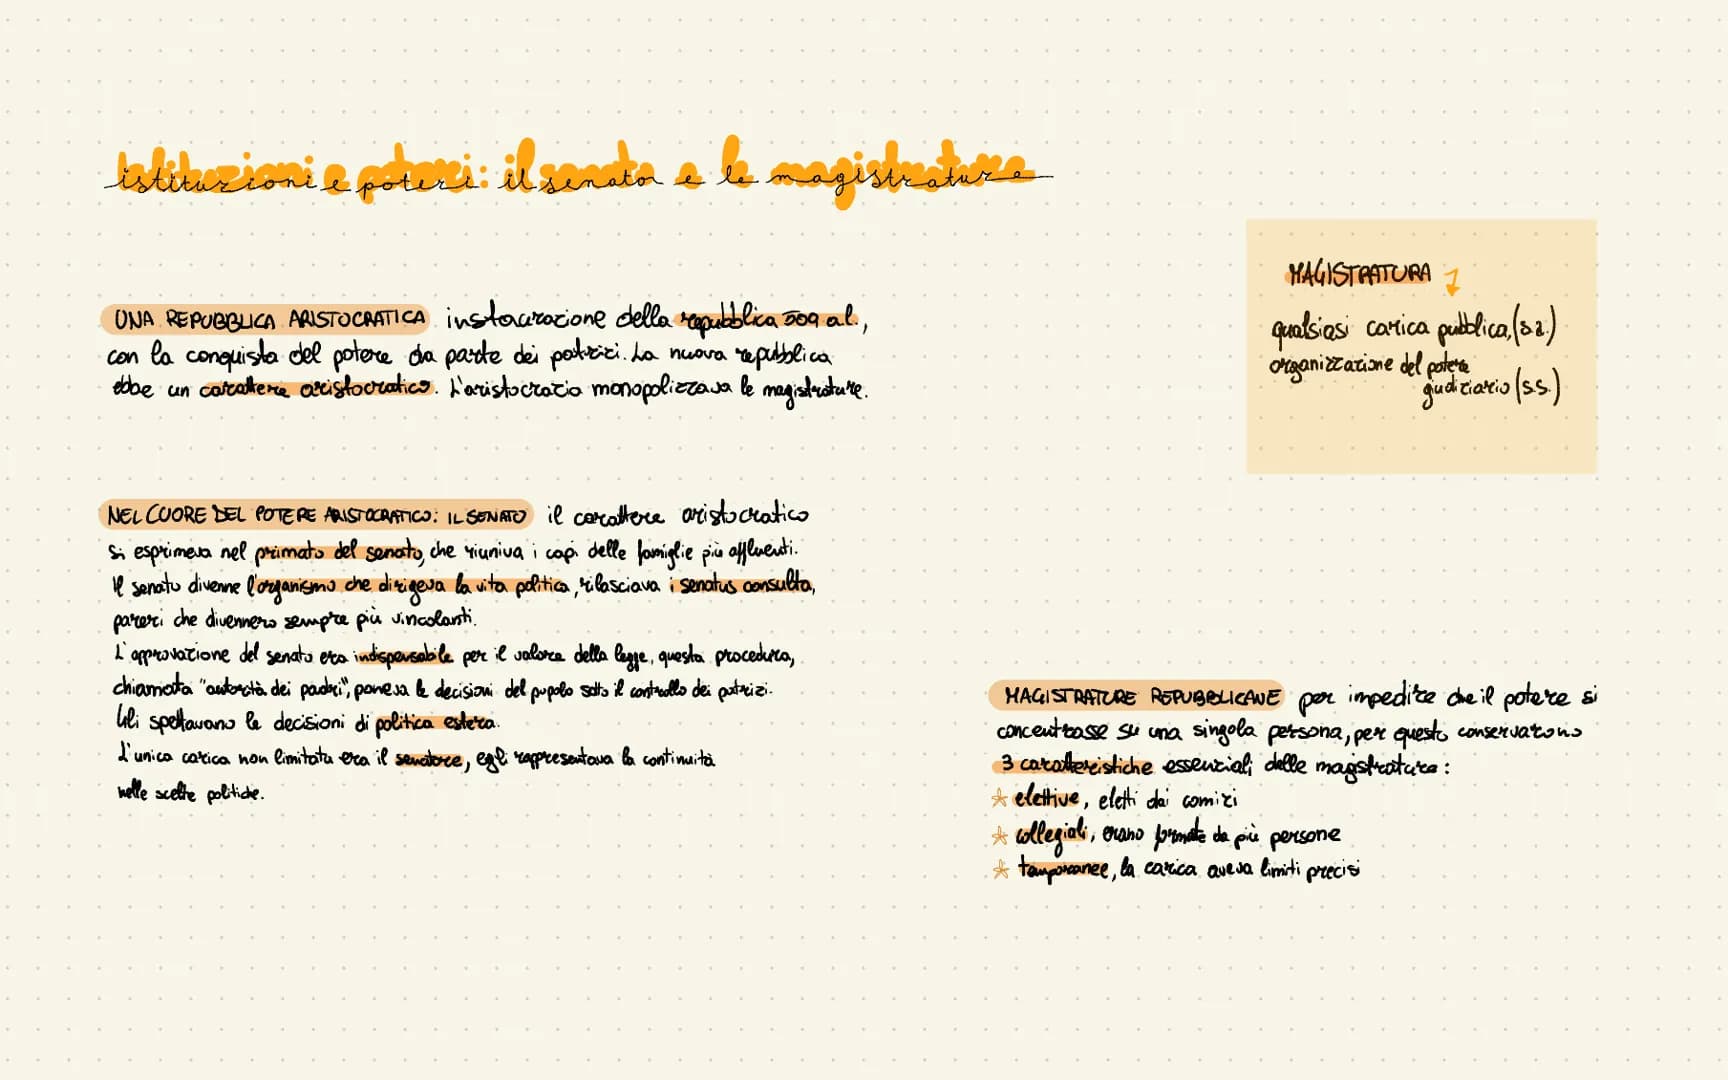 istituzioni e poteri: il senato e le magistrature
UNA REPUBBLICA ARISTOCRATICA instaurazione della repubblica 509 al.,
con la conquista del potere da parte dei patrizi. La nuova repubblica
ebbe un carattere aristocratico. L'aristocrazia monopolizzava le magistrature.
NEL CUORE DEL POTERE ARISTOCRATICO: IL SENATO il carattere aristocratico
si esprimeva nel primato del senato, che riuniva i capi delle famiglie più affluenti.
Il senato divenne l'organismo che dirigeva la vita politica, rilasciava i senatus consulta,
pareri che divennero sempre più vincolanti.
L'approvazione del senato era indispensabile per il valore della legge, questa procedura,
chiamata "autorità dei padri", poneva le decisioni del popolo sotto il controllo dei patrizi.
Gli spettavano le decisioni di politica estera.
L'unica carica non limitata era il senatore, egli rappresentava la continuità
nelle scelte politiche.
MAGISTRATURA
qualsiasi carica pubblica, (s.a.)
organizzazione del potere
giudiziario (s.s.)
MAGISTRATURE REPUBBLICANE per impedire che il potere si
concentrasse su una singola persona, per questo conservarono
3 caratteristiche essenziali delle magistrature:
elettive, eletti dai comizi
collegiali, erano formate da più persone
temporanee, la carica aveva limiti precisi